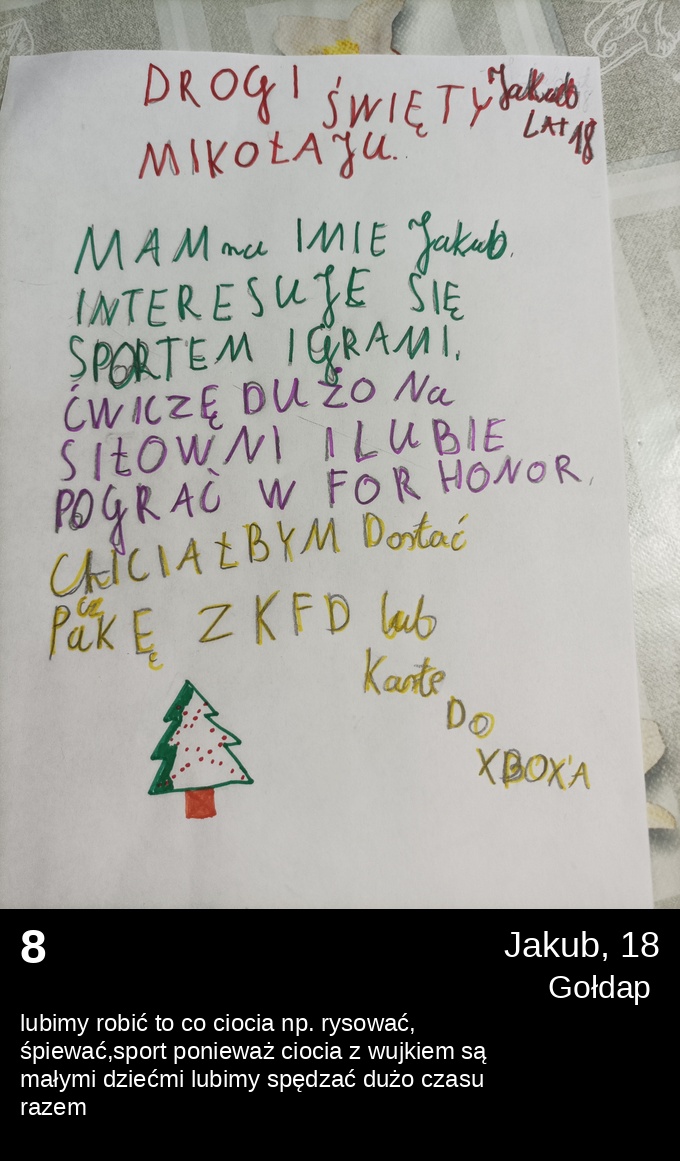 DROGI ŚWIĘTY Jakub
LAT 18
MIKOŁAJU.
MAM na IMIE Jakub.
INTERESUJE SIĘ
SPORTEM I GRAMI.
ĆWICZĘ DUŻO Na
SIŁOWNI I LUBIE
POGRAĆ W FOR HONOR.
CHCIAŁBYM Dostać
PaczKĘ Z KFD lub
Karte
DO
XBOX'A
8
Jakub, 18
Gołdap
lubimy robić to co ciocia np. rysować,
śpiewać,sport ponieważ ciocia z wujkiem są
małymi dziećmi lubimy spędzać dużo czasu
razem